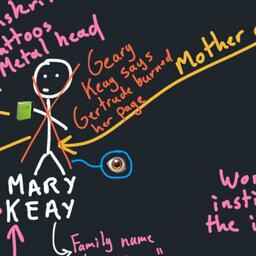 attoos
Metal head
Geary
Keay says
Gertrude burned
her page
Mother
MARY
KEAY
Family name
Wor
insti
the i